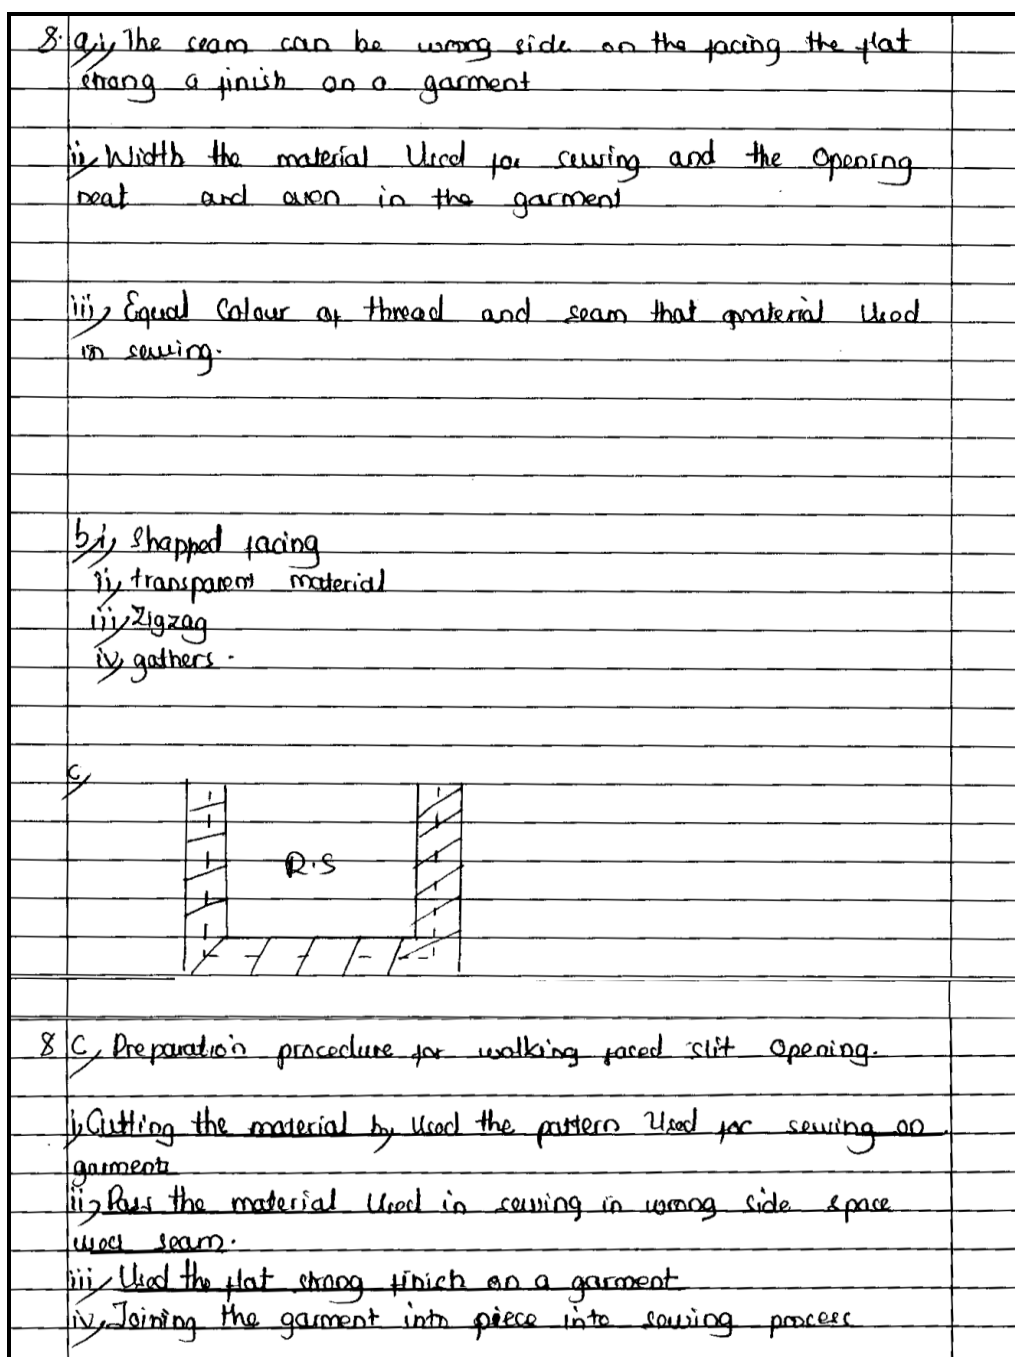 8. a, i, The seam can be wrong side on the facing the flat
strong a finish on a garment
ii, Width the material Used for sewing and the Opening
neat and even in the garment
iii, Equal Colour of thread and seam that material Used
in sewing.
b, i, Shapped facing
ii, transparent material
iii, Zigzag
iv, gathers.
c,
R.S
8 C, Preparation procedure for walking faced slit Opening.
i, Cutting the material by Used the pattern Used for sewing on
garment
ii, Pass the material Used in sewing in wrong side space
used seam.
iii, Used the flat strong finish on a garment
iv, Joining the garment into piece into sewing process